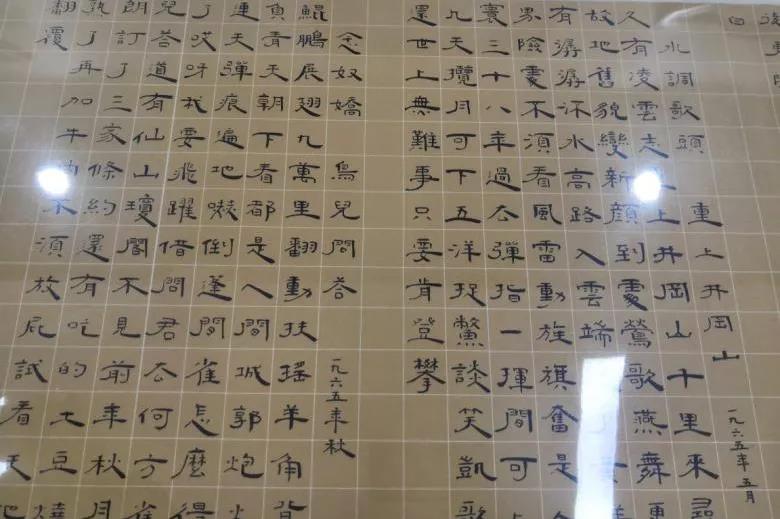 水調歌頭 重上井岡山 一九六五年五月
久有凌雲志上井岡山千里來尋
故地舊貌變新顏到處鶯歌燕舞更
有潺潺流水高路入雲端
界險處不須看風雷動旌旗奮是
寰三十八年過去彈指一揮間可
九天攬月可下五洋捉鱉談笑凱歌
還世上無難事只要肯登攀
念奴嬌 鳥兒問答 一九六五年秋
鯤鵬展翅九萬里翻動扶搖羊角背
負青天朝下看都是人間城郭炮火
連天彈痕遍地嚇倒蓬間雀怎麼得
了哎呀我要飛躍借問君去何方雀
兒答道有仙山瓊閣不見前年秋月
朗訂了三家條約還有吃的土豆燒
熟了再加牛肉不須放屁試看天地
翻覆